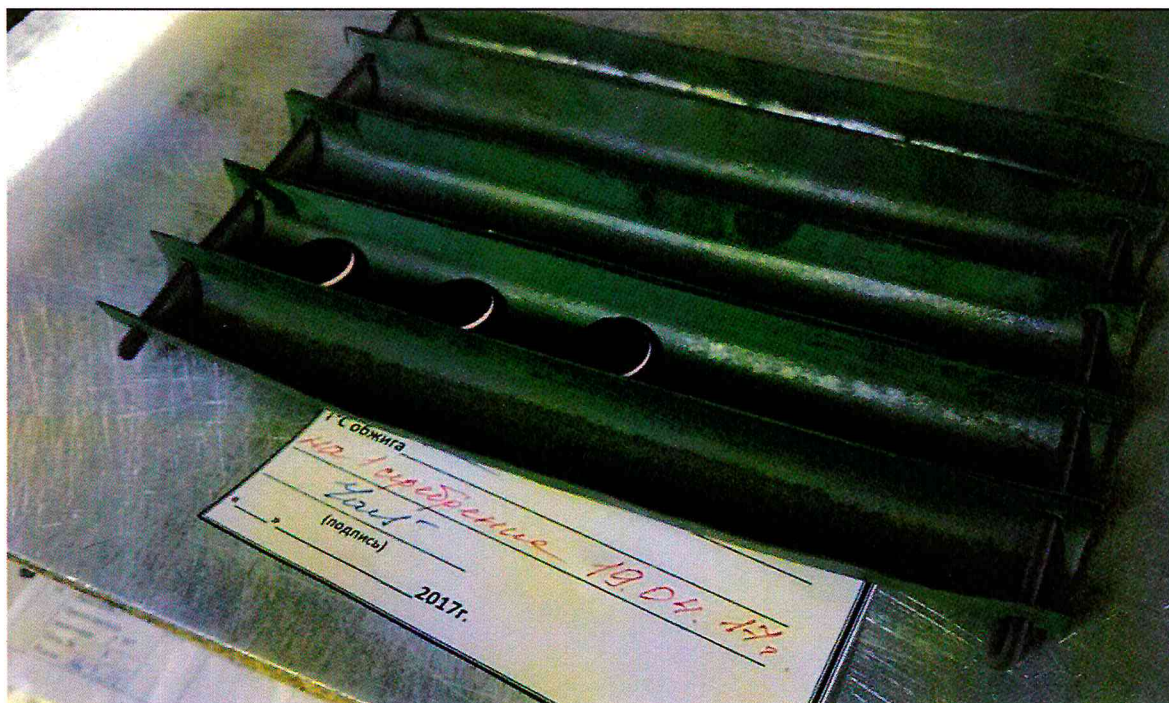 t°C обжига
на 1 серебрение 19.04.17г
(подпись)
"__"__________2017г.